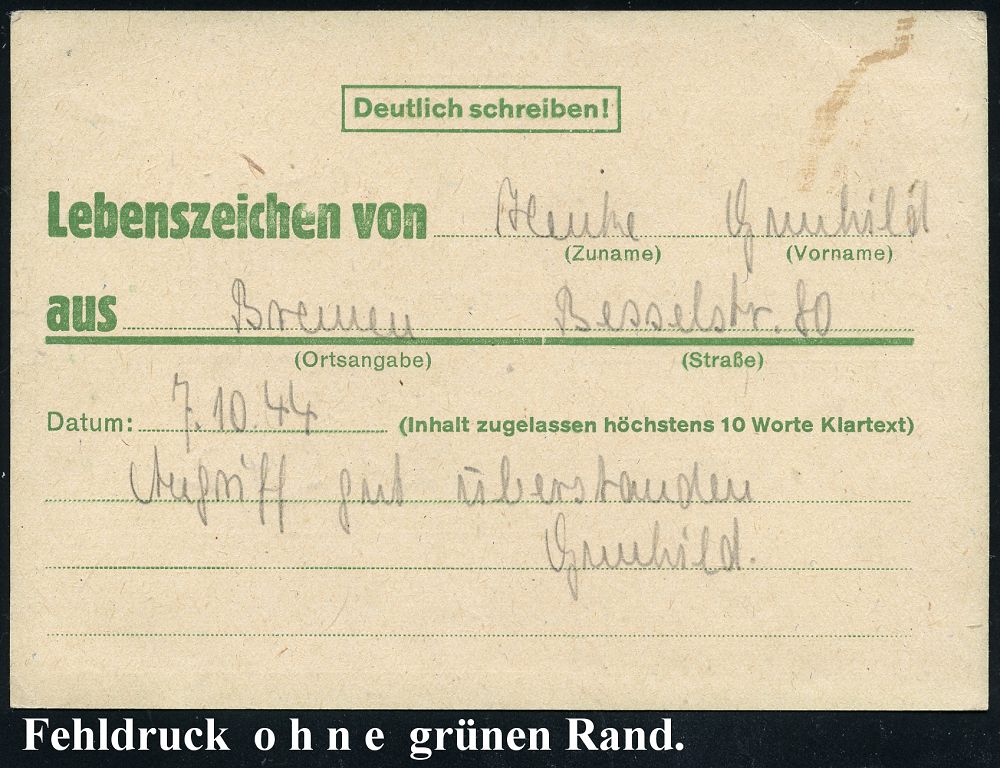 Deutlich schreiben!
Lebenszeichen von Henke Grunhild
(Zuname) (Vorname)
aus Bremen Besselstr. 80
(Ortsangabe) (Straße)
Datum: 7.10.44 (Inhalt zugelassen höchstens 10 Worte Klartext)
Angriff gut überstanden
Grunhild.
Fehldruck o h n e grünen Rand.